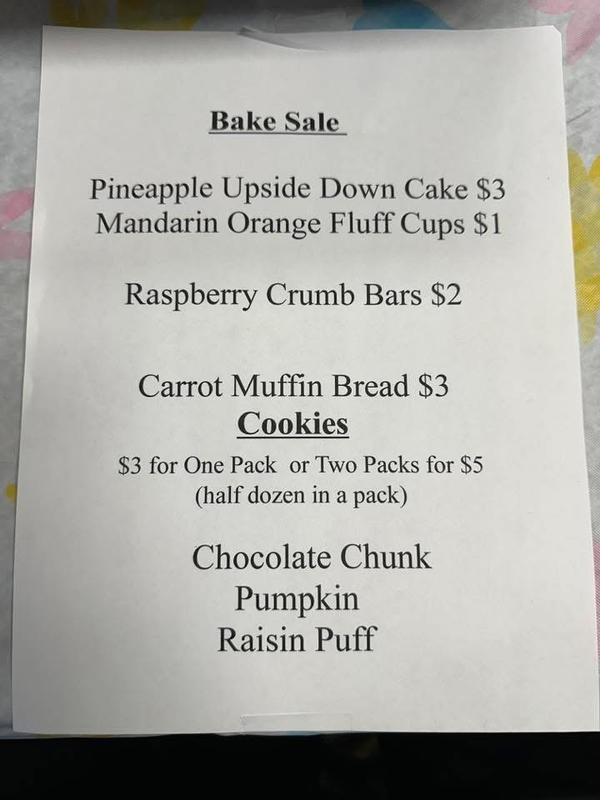 Bake Sale
Pineapple Upside Down Cake $3
Mandarin Orange Fluff Cups $1
Raspberry Crumb Bars $2
Carrot Muffin Bread $3
Cookies
$3 for One Pack or Two Packs for $5
(half dozen in a pack)
Chocolate Chunk
Pumpkin
Raisin Puff